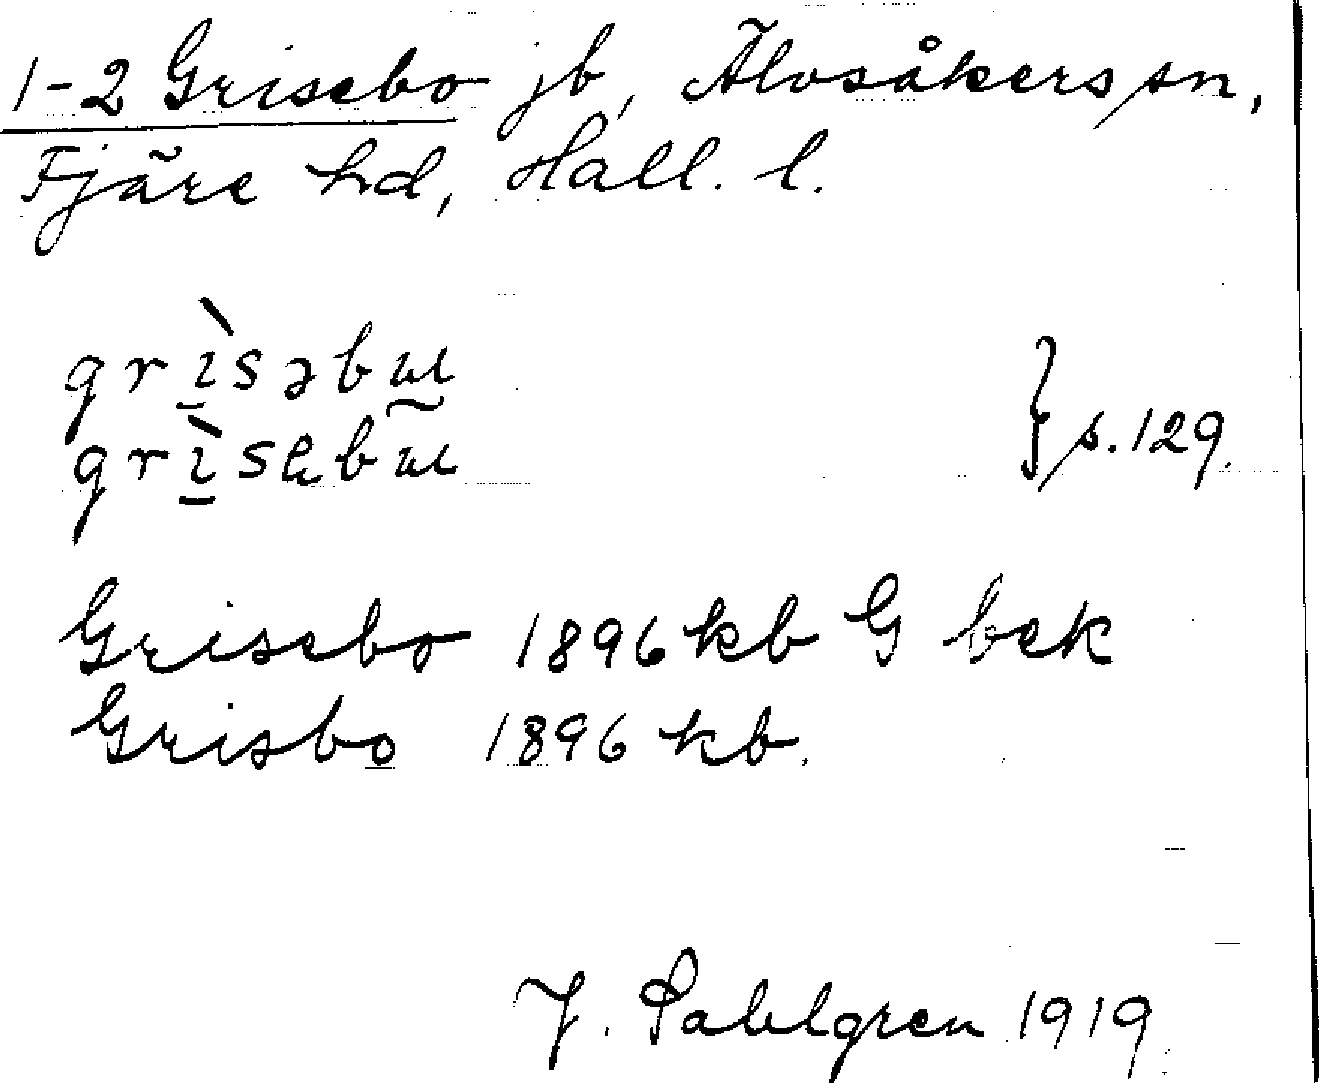 1-2 Grisebo jb, Älvsåkers sn,
Fjäre hd, Hall. l.
grìsəbɯ
grìsebɯ } s. 129.
Grisebo 1896 kb G bek
Grisbo 1896 kb.
J. Sahlgren 1919